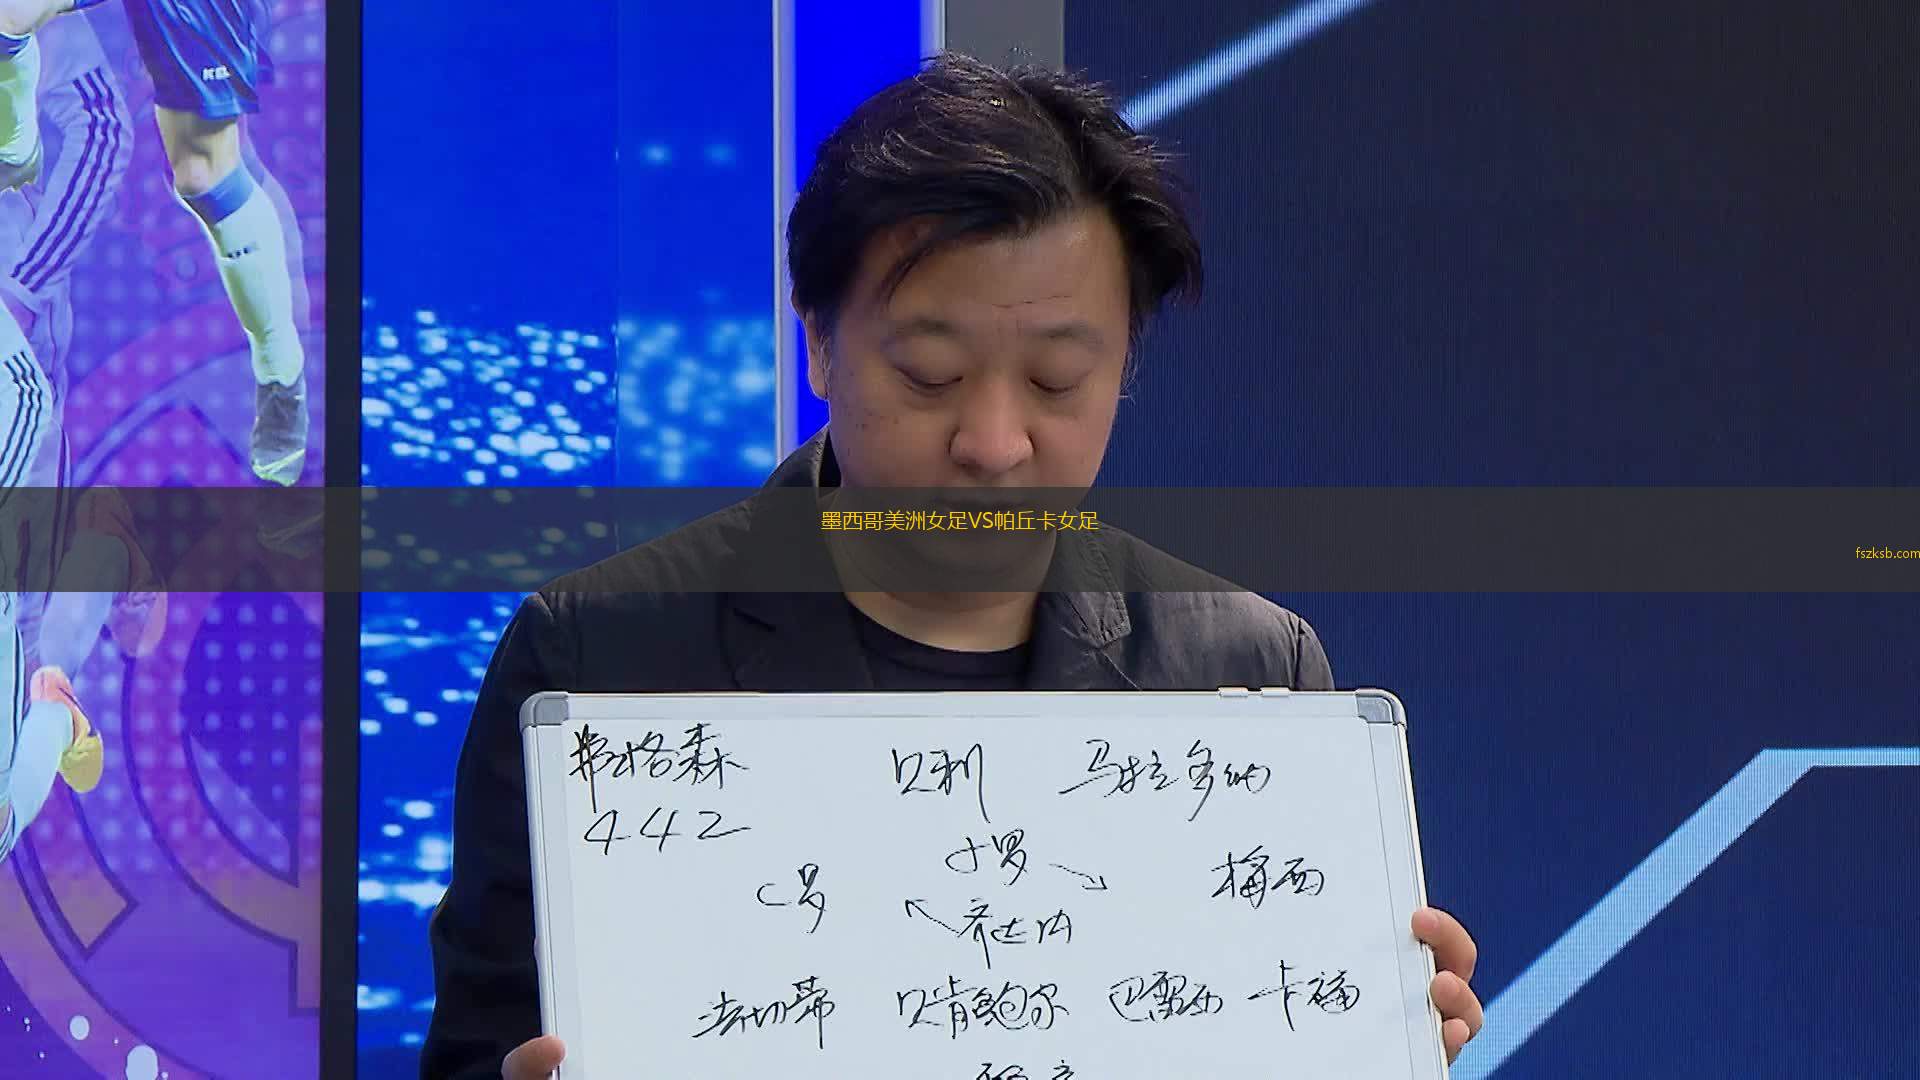 墨西哥美洲女足VS帕丘卡女足
fszksb.com
弗格森 贝利 马拉多纳
442
小罗
C罗 梅西
齐达内
法切蒂 贝肯鲍尔 巴雷西 卡福